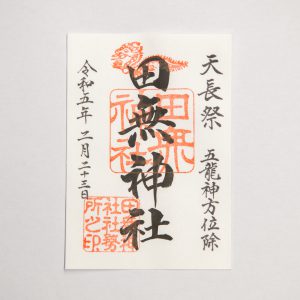 天長祭 五龍神方位除
田無神社
令和五年 二月二十三日
田無神社
田無神社社務所之印